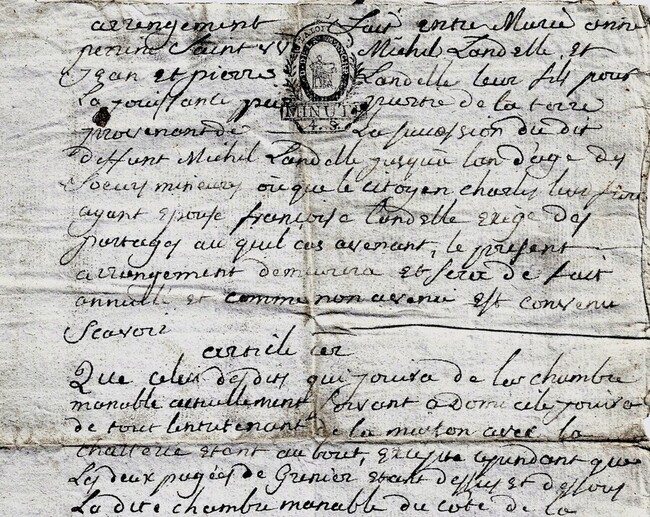 arrengement fait entre Marie anne
perine Saint Michel Landelle et
Jean et pierre Landelle leur fils pour
La jouissante par de la terre
provenant de La succession du dit
deffunt Michel Landelle jusqua lan d'age des
Soeurs mineures ou que le citoyen charles leur frere
ayant Epousé françoise Landelle Exege des
partages au quel cas avenant, le present
arrengement demeurera Et sera de fait
annullé et comme non avenu Est convenu
Scavoir
article 1er
Que celui des dits qui jouira de la chambre
manable actuellement Servant a Domicile jouira
de tout lentretenant de la maison avec la
Etant au bout, Excepté cependant que
Les deux de Grenier Etant dessus et dessous
La dite chambre manable du coté de la
MINUTE
4. S.